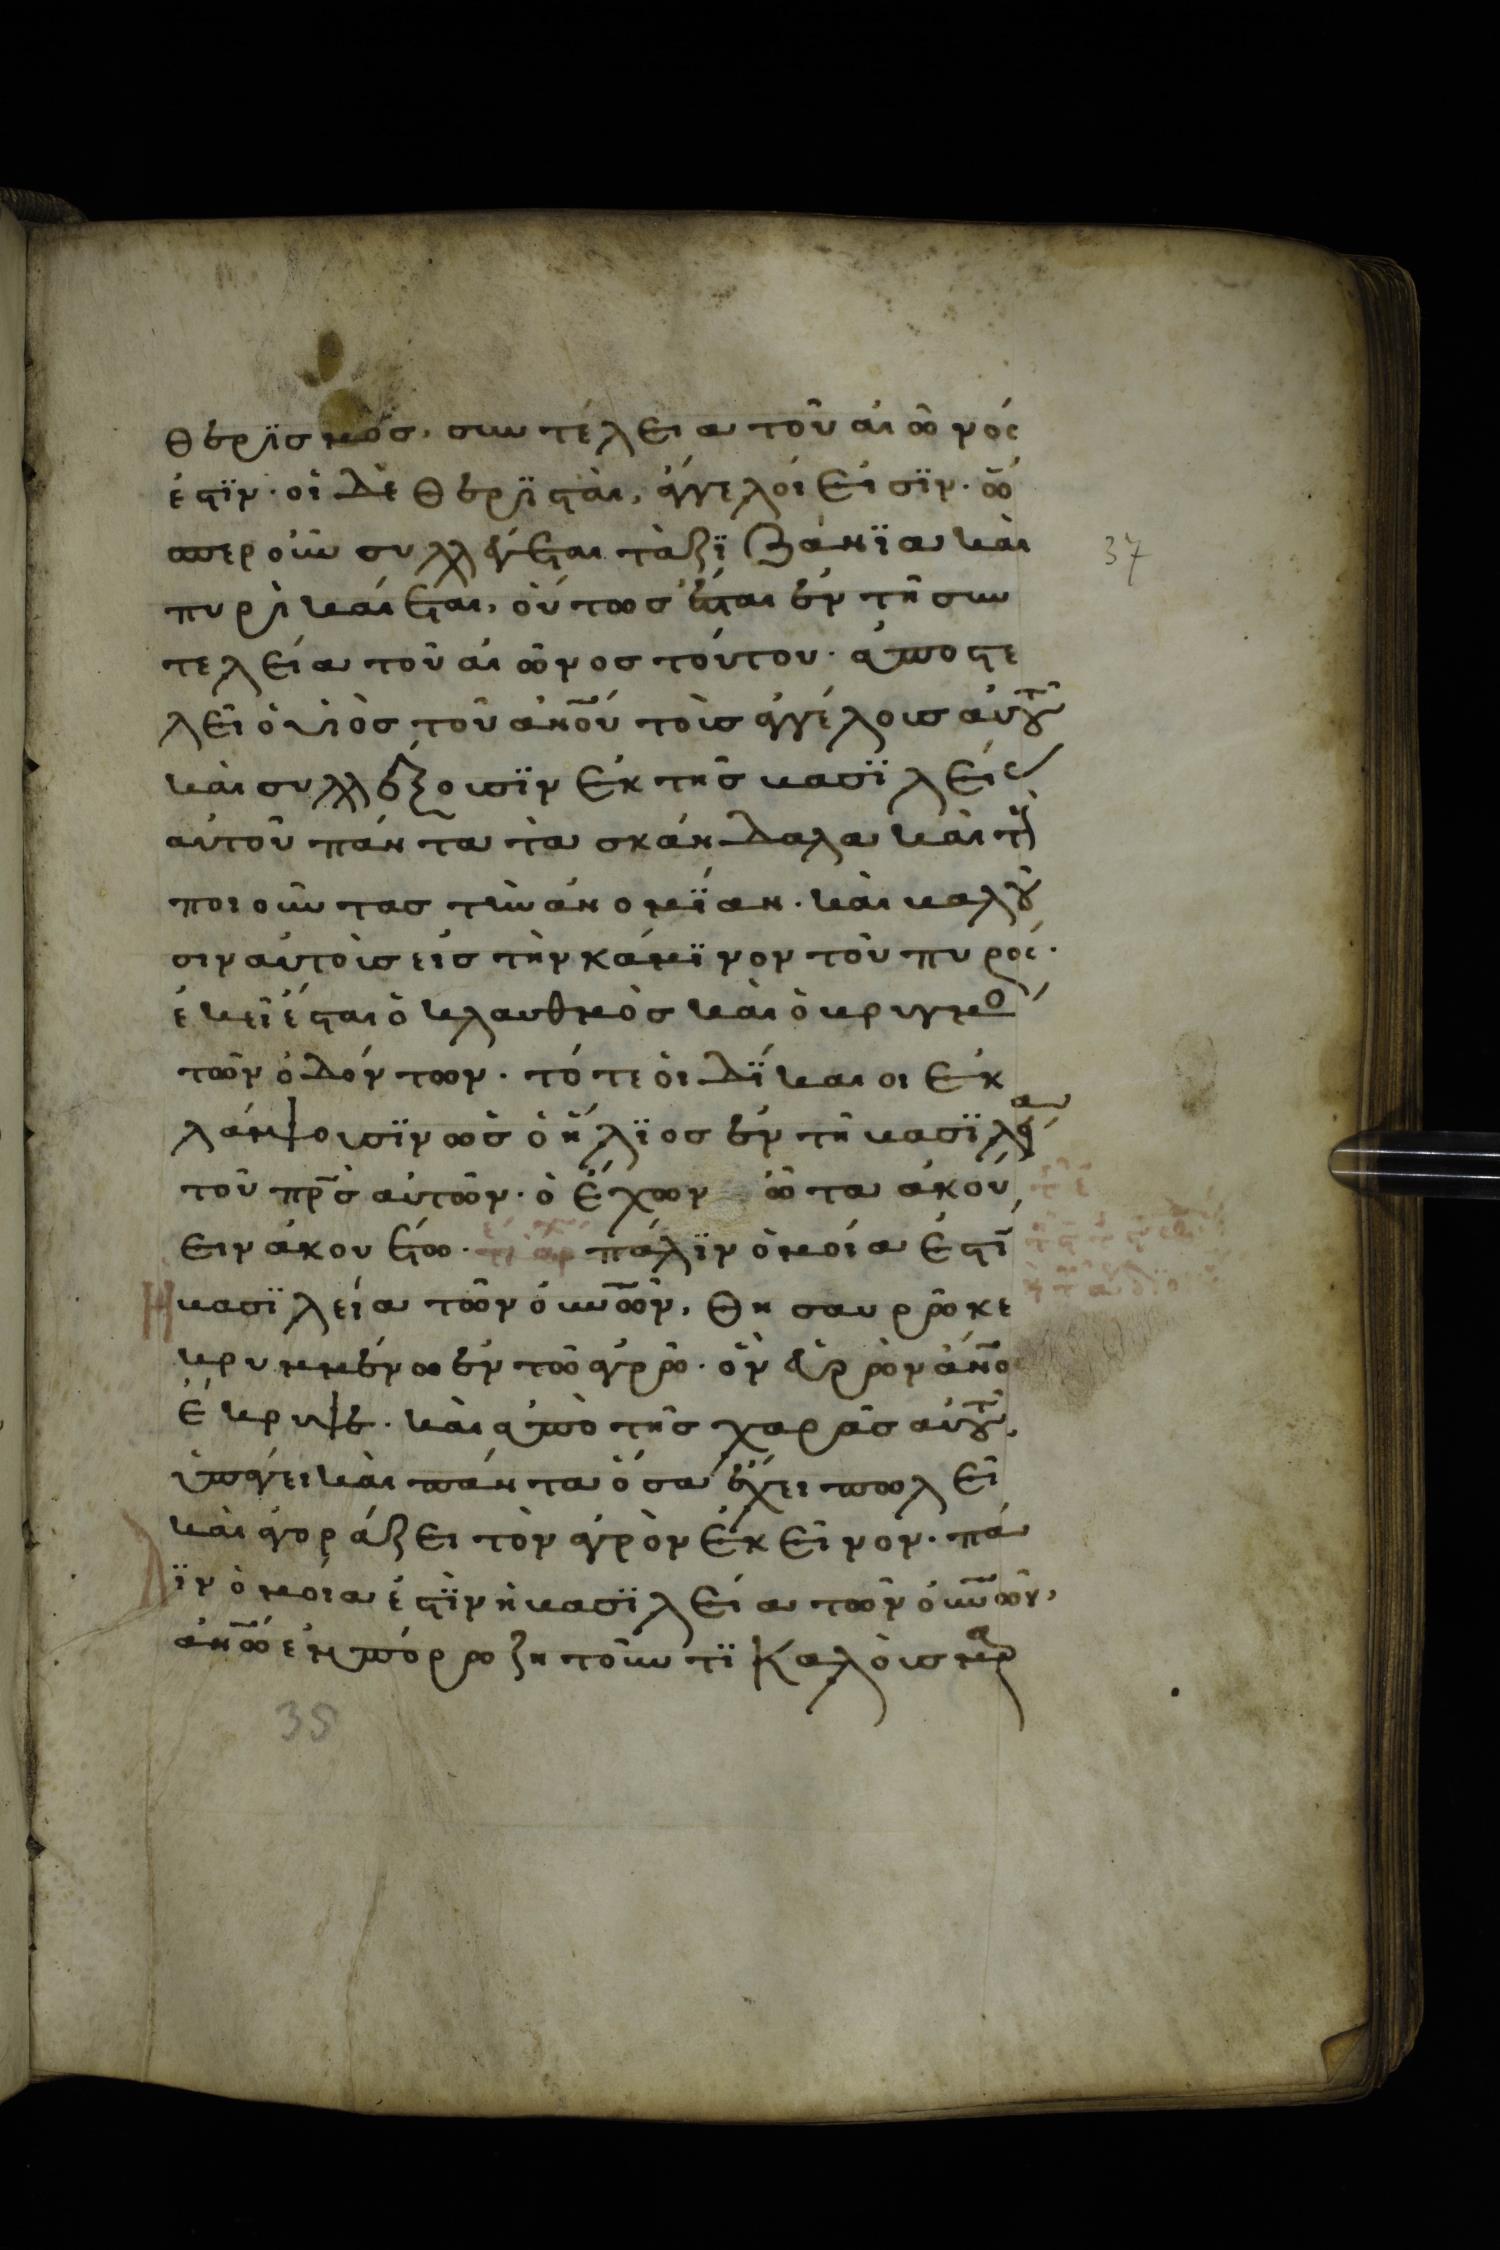 θερϊσμός, συντέλεια τοῦ αἰῶνός
ἐστϊν· οἱ δὲ θερϊσταὶ, ἄγγελοί εἰσϊν· ὥσ
περ οὖν συλλέγεται τὰ ζϊζάνϊα καὶ
37
πυρὶ καίεται, οὕτως ἔσται ἐν τῆ συν
τελεία τοῦ αἰῶνος τούτου· ἀποστε
λεῖ ὁ υἱὸς τοῦ ἀνοῦ τοὺς ἀγγέλους αὐτοῦ
καὶ συλλέξουσϊν ἐκ τῆς βασϊλείας
αὐτοῦ πάντα τὰ σκάνδαλα καὶ τοὺς
ποιοῦντας τὴν ἀνομΐαν· καὶ βαλοῦ
σιν αὐτοὺς εἰς τὴν κάμϊνον τοῦ πυρός·
ἐκεῖ ἔσται ὁ κλαυθμὸς καὶ ὁ βρυγμὸς
τῶν ὀδόντων· τότε οἱ δΐκαιοι ἐκ
λάμψουσϊν ὡς ὁ ἥλϊος ἐν τῆ βασϊλεία
τοῦ πρς αὐτῶν· ὁ ἔχων ὦτα ἀκού
ειν ἀκουέτω· πάλϊν ὁμοία ἐστὶ
Η βασϊλεία τῶν οὐνῶν, θησαυρῶ κε
κρυμμένω ἐν τῶ ἀγρῶ· ὃν εὑρὼν ἀνοσ
ἔκρυψε· καὶ ἀπὸ τῆς χαρᾶς αὐτοῦ,
ὑπάγει καὶ πάντα ὅσα ἔχει πωλεῖ
καὶ ἀγοράζει τὸν ἀγρὸν ἐκεῖνον· πά
λϊν ὁμοία ἐστὶν ἡ βασϊλεία τῶν οὐνῶν,
ἀνῶ ἐμπόρω ζητοῦντϊ καλοὺς μαρ
35